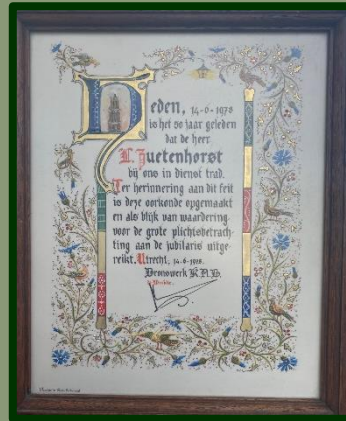 Heden, 14-6-1978
is het 50 jaar geleden
dat de heer
L. Zuetenhorst
bij ons in dienst trad.
Ter herinnering aan dit feit
is deze oorkonde opgemaakt
en als blijk van waardering
voor de grote plichtsbetrach-
ting aan de jubilaris uitge-
reikt. Utrecht, 14-6-1978.
Demowerk K.N.B.